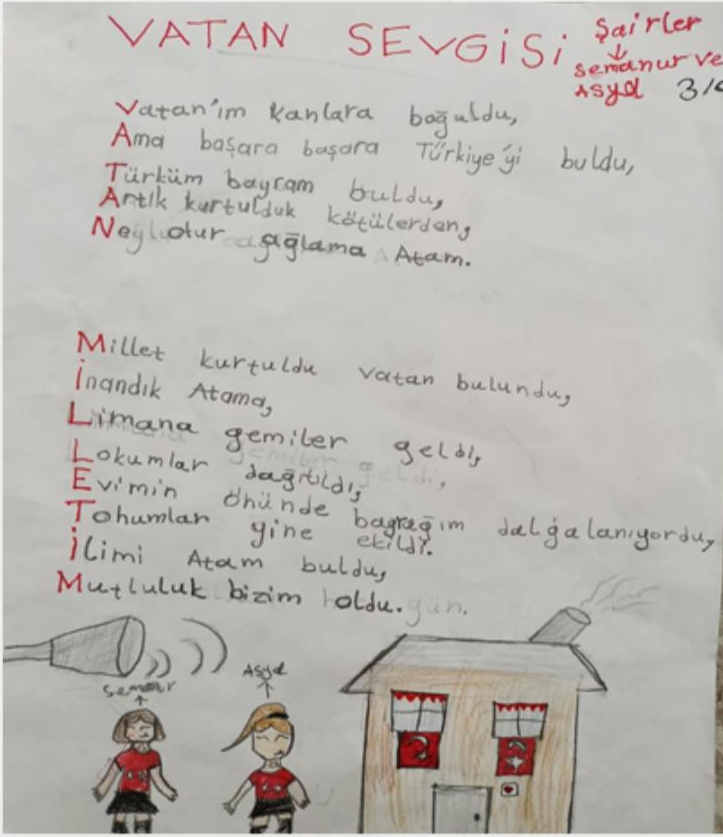 VATAN SEVGİSİ
Şairler
↓
Semanur ve
Asya 3/
Vatan'ım kanlara boğuldu,
Ama başara başara Türkiye'yi buldu,
Türküm bayram buldu,
Artık kurtulduk kötülerden,
olur ağlama Atam.
Millet kurtuldu vatan bulundu,
İnandık Atama,
Limana gemiler geldi,
Lokumlar dağıtıldı,
Evimin önünde bayrağım dalğalanıyordu,
Tohumlar yine ekildi.
İlimi Atam buldu,
Mutluluk bizim oldu.
Semanur
Asya